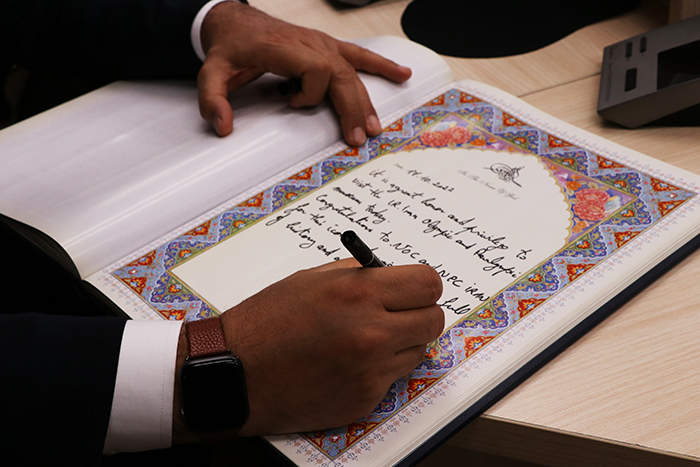 In The Name Of God
19.10.2022
It is a great honor and privilege to
visit the I.R. Iran Olympic and Paralympic
museum today.
Congratulations to NOC and NPC IRAN
for the
history and